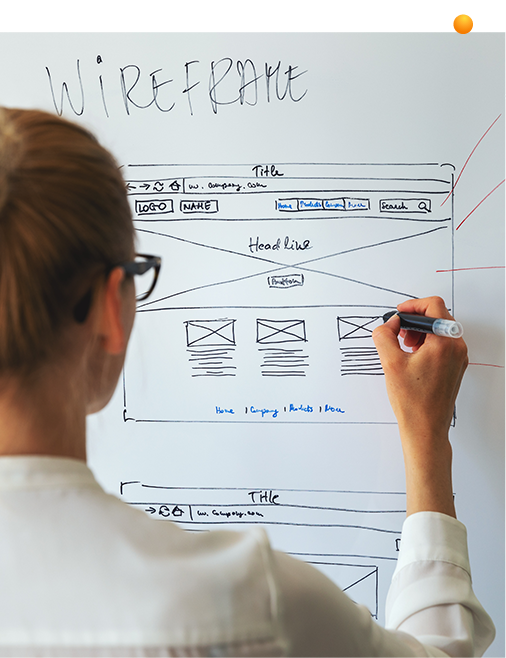 WIREFRAME
Title
w. company.com
LOGO NAME Home Products Company More Search
Headline
Button
Home | Company | Products | More
Title
w. company.com